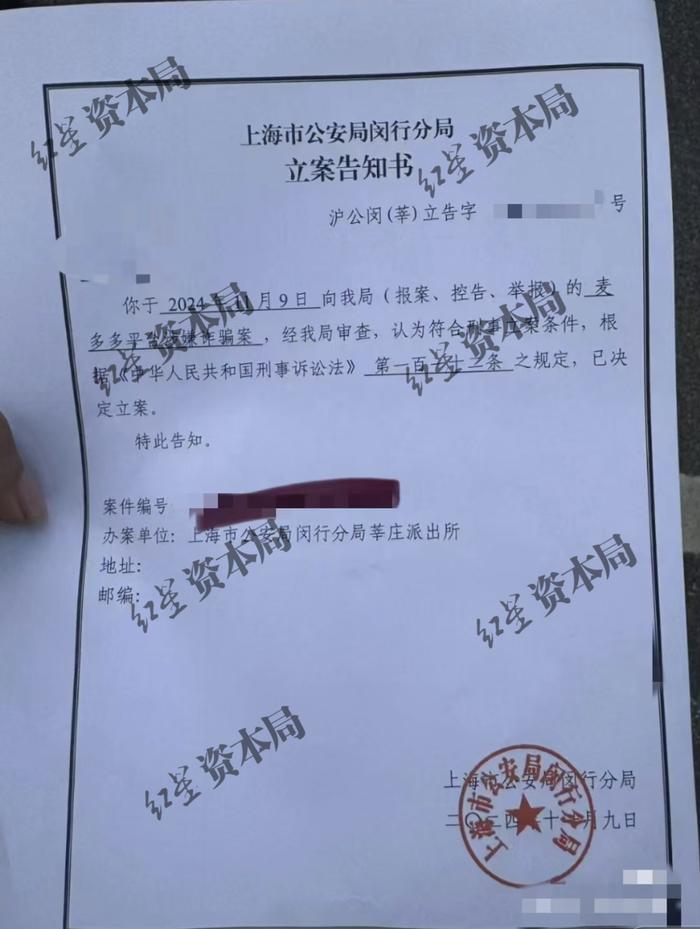 红星 资本局
红星 资本局
上海市公安局闵行分局
立案告知书
沪公闵(莘)立告字 号
你于 2024年11月9日 向我局(报案、控告、举报)的 麦
多多平台涉嫌诈骗案 ,经我局审查,认为符合刑事立案条件,根
据《中华人民共和国刑事诉讼法》 第一百一十二条 之规定,已决
定立案。
特此告知。
红星 资本局
红星 资本局
案件编号
办案单位:上海市公安局闵行分局莘庄派出所
地址:
邮编:
红星 资本局
红星 资本局
红星 资本局
上海市公安局闵行分局
二〇二四年十一月九日
上海市公安局闵行分局